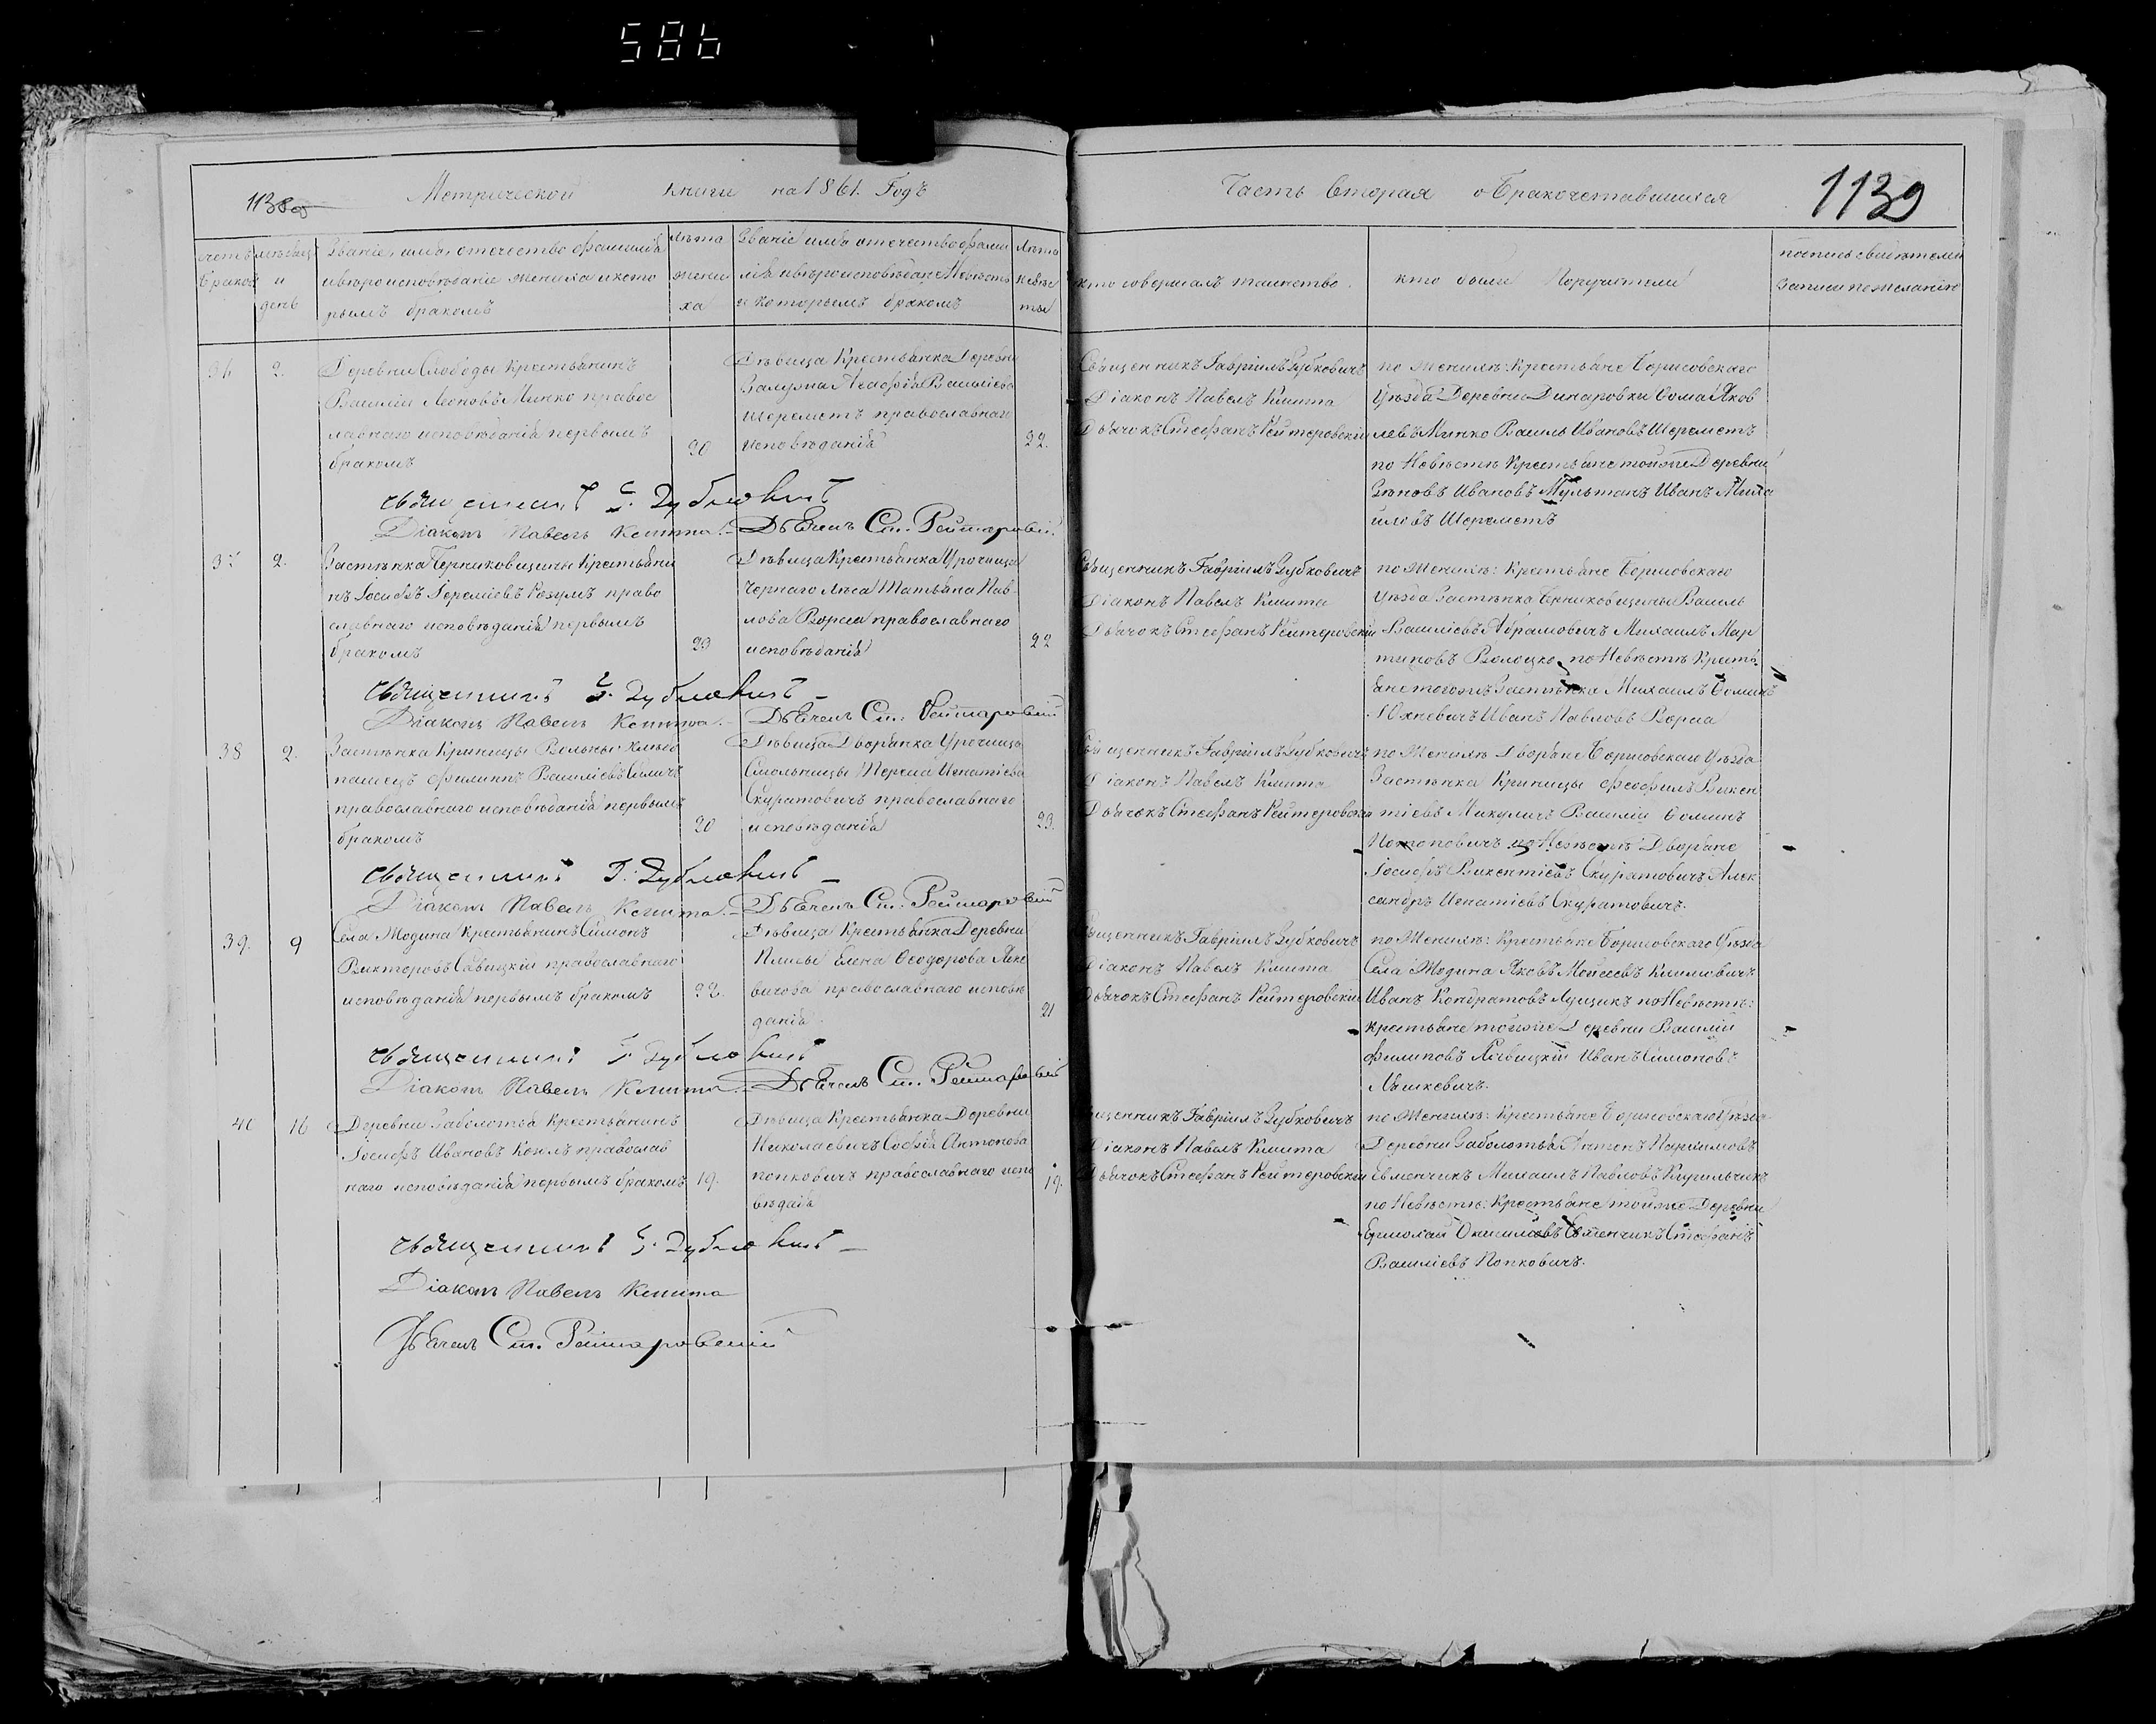 586
1138об
Метрической книги на 1861. Годъ
Часть Вторая о Бракочетавшихся
1139
счетъ Браков
мѣсяцъ и день
Званіе, имя, отечество фамилія
и вѣроисповѣданіе жениха и кото
рымъ бракомъ
Лѣта жени ха
Званіе имя отечество фами
лія и вѣроисповѣданіе Невѣсты
и которымъ бракомъ
Лѣта Невѣс ты
кто совершалъ таинство
кто были Поручители
подпись свидѣтелей
записи по желанію
36
2.
Деревни Слободы Крестьянинъ
Василій Леоновъ Минко правос
лавнаго исповѣданія первымъ
бракомъ
20
Дѣвица Крестьянка Деревни
Василіева
Шереметъ православнаго
исповѣданія
22.
Священникъ Гавріилъ Зубковичъ
Діаконъ Павелъ Кмита
Дьячокъ Стефанъ Рейтеровскій
по Женихѣ: Крестьяне Борисовскаго
Уѣзда Деревни Динаровки Ѳома Яков
левъ Минко Василь Ивановъ Шереметъ
по Невѣстѣ Крестьяне тойже Деревни
Ивановъ Мультанъ Иванъ Миха
иловъ Шереметъ
Священникъ Г. Зубковичъ
Діаконъ Павелъ Кмита. Дьячекъ Ст. Рейтаровскій
37
2.
Застѣнка Черниковщины Крестьяни
нъ Іосифъ Іереміевъ Козулъ право
славнаго исповѣданія первымъ
бракомъ
23
Дѣвица Крестьянка Урочища
Чернаго Лѣса Татьяна Пав
лова Ворса православнаго
исповѣданія
22
Священникъ Гавріилъ Зубковичъ
Діаконъ Павелъ Кмита
Дьячокъ Стефанъ Рейтеровскій
по Женихѣ: Крестьяне Борисовскаго
Уѣзда Застѣнка Черниковщины Василь
Василіевъ Абрамовичъ Михаилъ Мар
тиновъ Волоцко по Невѣстѣ Кресть
яне тогожъ Застѣнка Михаилъ Ѳоминъ
Юхневичъ Иванъ Павловъ Ворса
Священникъ Г. Зубковичъ
Діаконъ Павелъ Кмита. Дьячекъ Ст. Рейтаровскій
38
2.
Застѣнка Криницы Вольный хлѣбо
пашецъ Филипъ Василіевъ
православнаго исповѣданія первымъ
бракомъ
20
Дѣвица Дворянка Урочища
Смольницы Тереса Игнатіева
Скуратовичъ православнаго
исповѣданія
23.
Священникъ Гавріилъ Зубковичъ
Діаконъ Павелъ Кмита
Дьячокъ Стефанъ Рейтеровскій
по Женихѣ Дворяне Борисовскаго Уѣзда
Застѣнка Криницы Феофилъ Викен
тіевъ Микуличъ Василій Ѳоминъ
Потоповичъ по Невѣстѣ Дворяне
Іосифъ Викентіевъ Скуратовичъ Алек
сандръ Игнатіевъ Скуратовичъ.
Священникъ Г. Зубковичъ
Діаконъ Павелъ Кмита. Дьячекъ Ст. Рейтаровскій
39.
9
Села Жодина Крестьянинъ Симонъ
Викторовъ Савицкій православнаго
исповѣданія первымъ бракомъ
22.
Дѣвица Крестьянка Деревни
Плисы Елена Ѳеодорова
православнаго исповѣ
данія.
21
Священникъ Гавріилъ Зубковичъ
Діаконъ Павелъ Кмита
Дьячокъ Стефанъ Рейтеровскій
по Женихѣ: Крестьяне Борисовскаго Уѣзда
Села Жодина Яковъ Моисеевъ Климовичъ
Иванъ Кондратовъ Лущикъ по Невѣстѣ:
крестьяне тойже Деревни Василій
Филиповъ Иванъ Симоновъ
Ляшкевичъ.
Священникъ Г. Зубковичъ
Діаконъ Павелъ Кмита. Дьячекъ Ст. Рейтаровскій
40
16
Деревни Заболотья Крестьянинъ
Іосифъ Ивановъ православ
наго исповѣданія первымъ бракомъ
19.
Дѣвица Крестьянка Деревни
Николаевичъ Софія Антонова
попковичъ православнаго испо
вѣданія
19.
Священникъ Гавріилъ Зубковичъ
Діаконъ Павелъ Кмита
Дьячокъ Стефанъ Рейтеровскій
по Женихѣ: Крестьяне Борисовскаго Уѣзда
Деревни Заболотья Антонъ
Михаилъ Павловъ Кирильчикъ
по Невѣстѣ: Крестьяне тойже Деревни
Ермолай Стефанъ
Василіевъ Попковичъ.
Священникъ Г. Зубковичъ
Діаконъ Павелъ Кмита
Дьячекъ Ст. Рейтаровскій